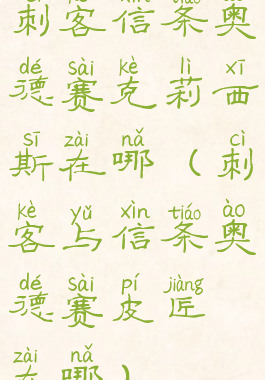 刺客信条奥
dé sài kè lì xī
德赛克莉西
sī zài nǎ cì
斯在哪（刺
kè yǔ xìn tiáo ào
客与信条奥
dé sài pí jiàng
德赛皮匠
zài nǎ
在哪）